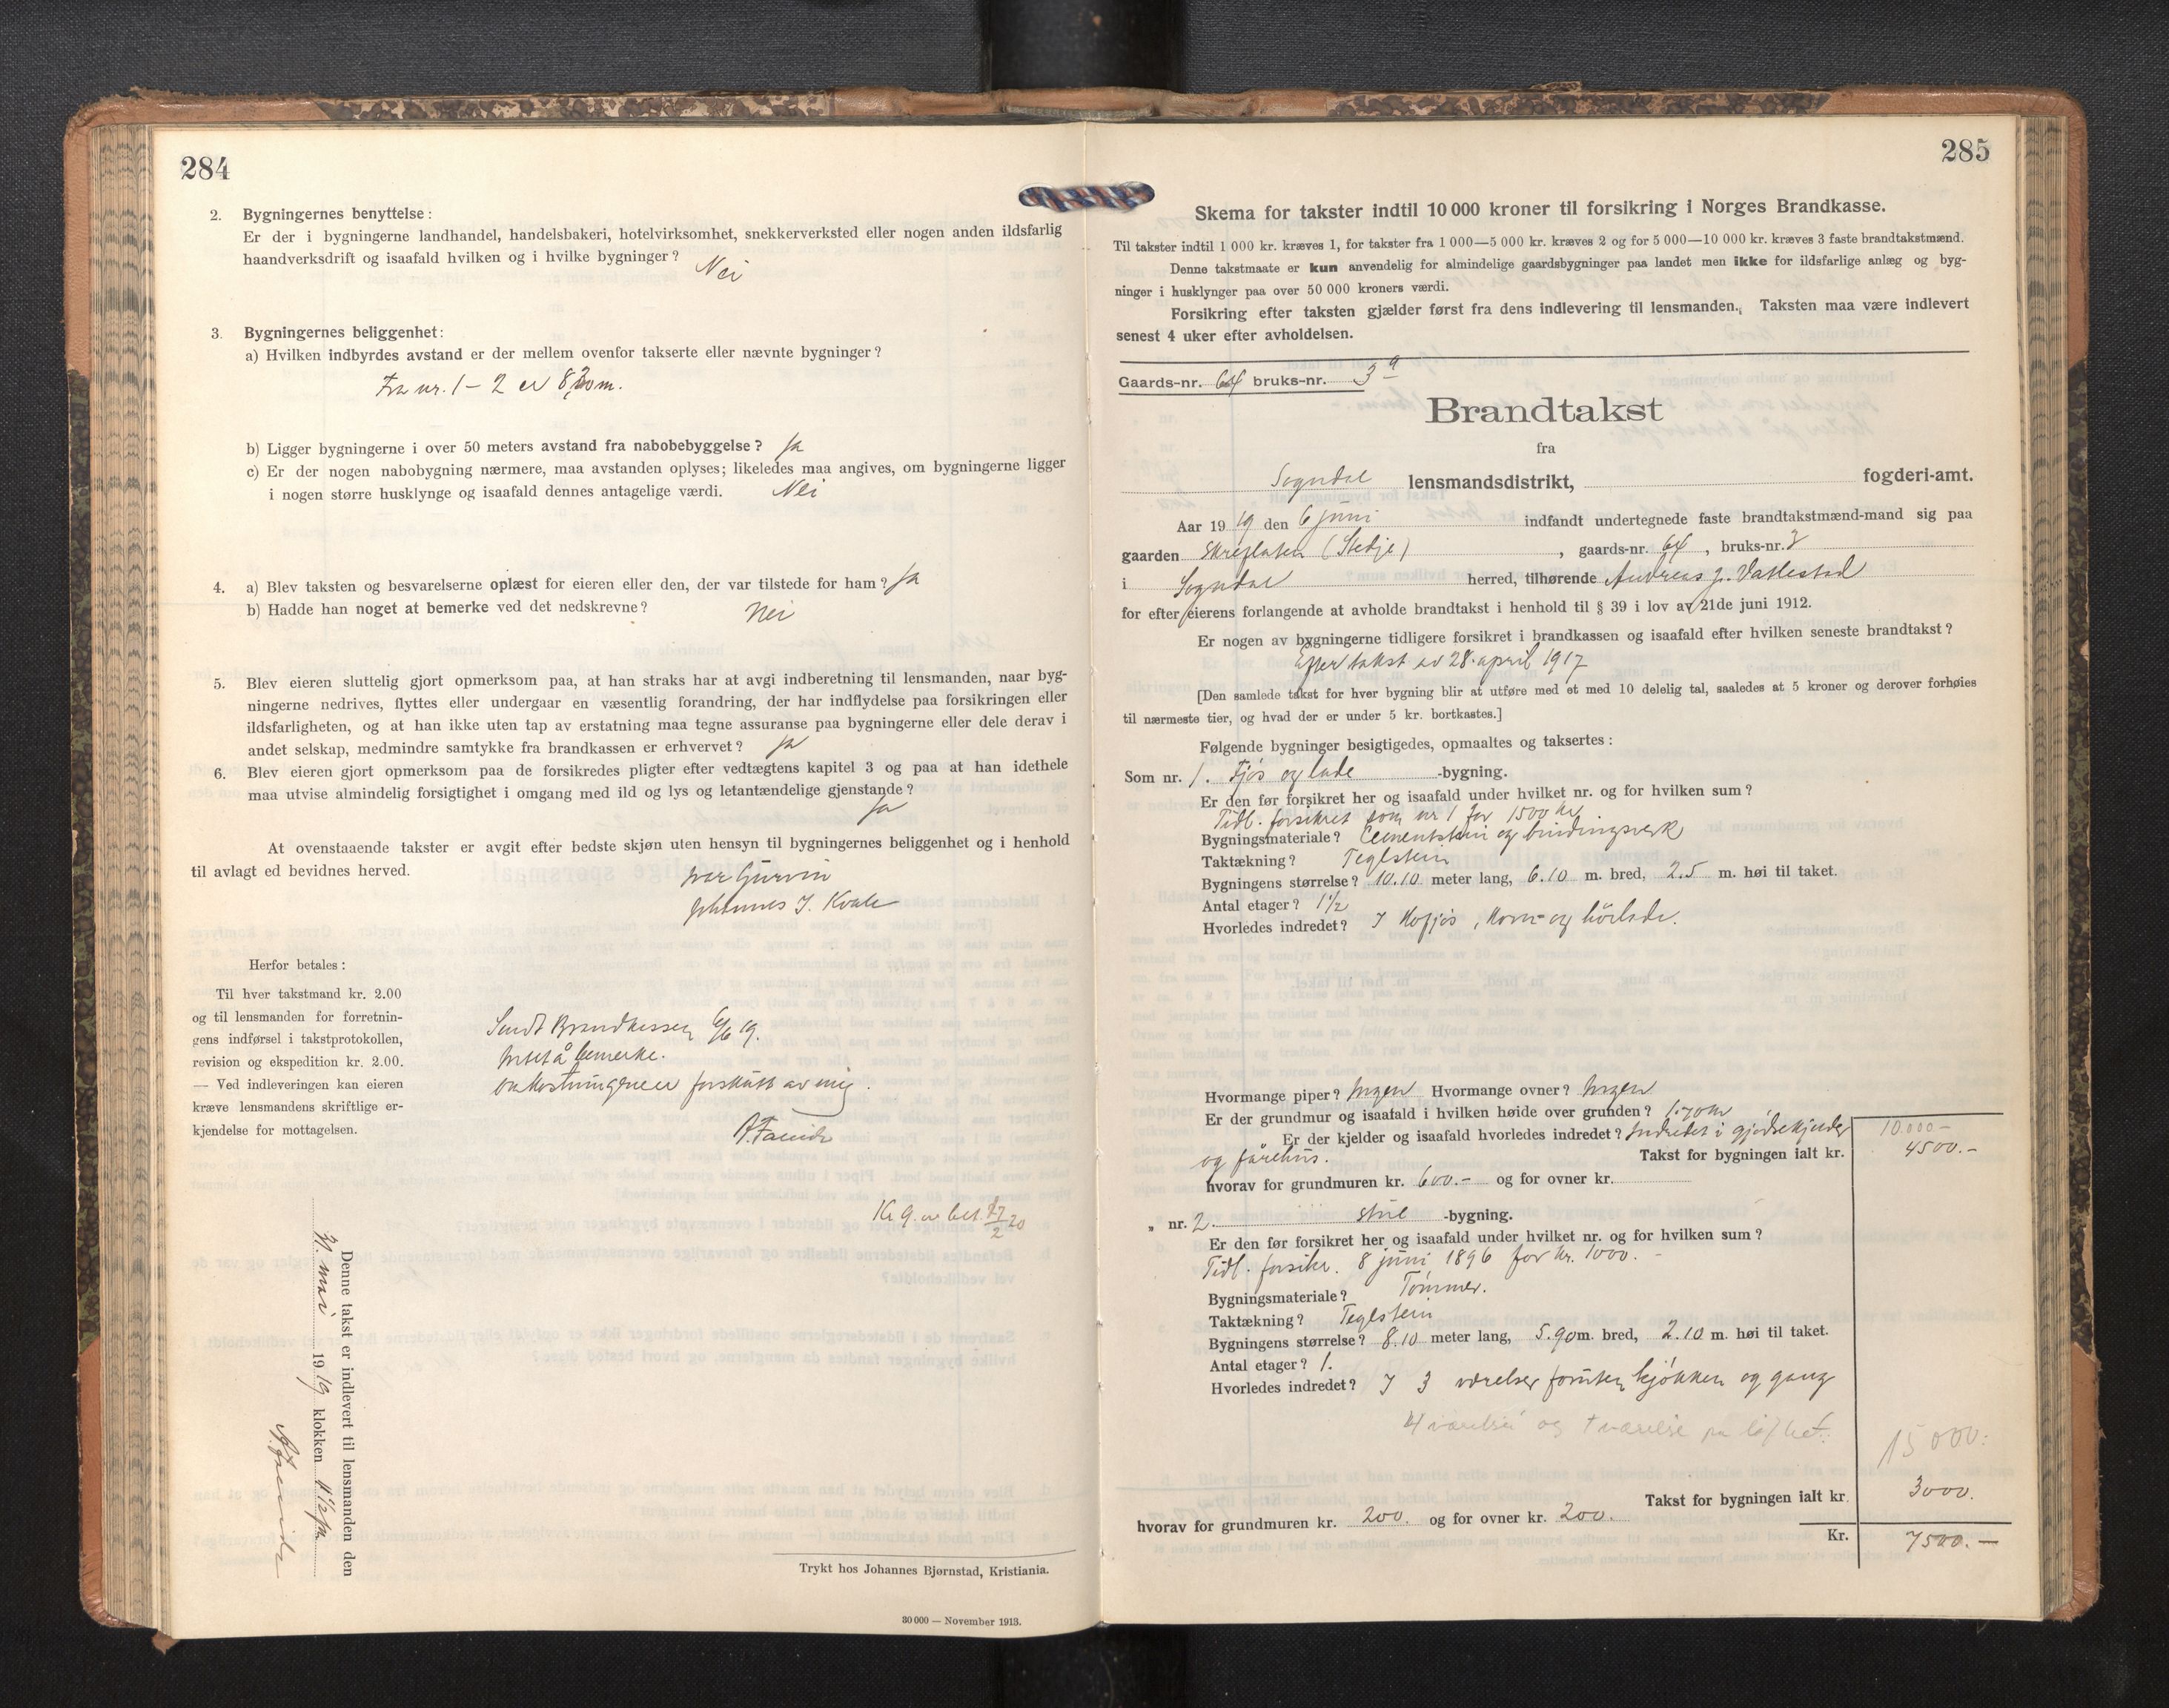 284
2. Bygningernes benyttelse:
Er der i bygningerne landhandel, handelsbakeri, hotelvirksomhet, snekkerverksted eller nogen anden ildsfarlig
haandverksdrift og isaafald hvilken og i hvilke bygninger? Nei
3. Bygningernes beliggenhet:
a) Hvilken indbyrdes avstand er der mellem ovenfor takserte eller nævnte bygninger?
Fra nr. 1 - 2 er m.
b) Ligger bygningerne i over 50 meters avstand fra nabobebyggelse? Ja
c) Er der nogen nabobygning nærmere, maa avstanden oplyses; likeledes maa angives, om bygningerne ligger
i nogen større husklynge og isaafald dennes antagelige værdi. Nei
4. a) Blev taksten og besvarelserne oplæst for eieren eller den, der var tilstede for ham? Ja
b) Hadde han noget at bemerke ved det nedskrevne? Nei
5. Blev eieren sluttelig gjort opmerksom paa, at han straks har at avgi indberetning til lensmanden, naar byg-
ningerne nedrives, flyttes eller undergaar en væsentlig forandring, der har indflydelse paa forsikringen eller
ildsfarligheten, og at han ikke uten tap av erstatning maa tegne assuranse paa bygningerne eller dele derav i
andet selskap, medmindre samtykke fra brandkassen er erhvervet? Ja
6. Blev eieren gjort opmerksom paa de forsikredes pligter efter vedtægtens kapitel 3 og paa at han idethele
maa utvise almindelig forsigtighet i omgang med ild og lys og letantændelige gjenstande?
Ja
At ovenstaaende takster er avgit efter bedste skjøn uten hensyn til bygningernes beliggenhet og i henhold
til avlagt ed bevidnes herved.
Ivar Gurvin
Johannes J. Kvale
Herfor betales:
Til hver takstmand kr. 2.00
og til lensmanden for forretnin-
gens indførsel i takstprotokollen,
revision og ekspedition kr. 2.00.
— Ved indleveringen kan eieren
kræve lensmandens skriftlige er-
kjendelse for mottagelsen.
Sendt Brandkassen 6/6 19.
Intet å bemerke.
Omkostningene er forskutt av mig.
Kr 9. er bet. 17/2 20
Denne takst er indlevert til lensmanden den
31. mai 1919 klokken 11 1/2 fm
Trykt hos Johannes Bjørnstad, Kristiania.
30 000 — November 1913.
285
Skema for takster indtil 10 000 kroner til forsikring i Norges Brandkasse.
Til takster indtil 1 000 kr. kræves 1, for takster fra 1 000—5 000 kr. kræves 2 og for 5 000—10 000 kr. kræves 3 faste brandtakstmænd.
Denne takstmaate er kun anvendelig for almindelige gaardsbygninger paa landet men ikke for ildsfarlige anlæg og byg-
ninger i husklynger paa over 50 000 kroners værdi.
Forsikring efter taksten gjælder først fra dens indlevering til lensmanden. Taksten maa være indlevert
senest 4 uker efter avholdelsen.
Gaards-nr. 64 bruks-nr. 3 a
Brandtakst
fra
Sogndal lensmandsdistrikt, fogderi-amt.
Aar 1919 den 6 juni indfandt undertegnede faste brandtakstmænd-mand sig paa
gaarden Skreflaten (Stedje), gaards-nr. 64, bruks-nr. 3
i Sogndal herred, tilhørende Andreas J. Vatlestad
for efter eierens forlangende at avholde brandtakst i henhold til § 39 i lov av 21de juni 1912.
Er nogen av bygningerne tidligere forsikret i brandkassen og isaafald efter hvilken seneste brandtakst?
Efter takst av 28. april 1917
[Den samlede takst for hver bygning blir at utføre med et med 10 delelig tal, saaledes at 5 kroner og derover forhøies
til nærmeste tier, og hvad der er under 5 kr. bortkastes.]
Følgende bygninger besigtigedes, opmaaltes og taksertes:
Som nr. 1. Fjøs og lade -bygning.
Er den før forsikret her og isaafald under hvilket nr. og for hvilken sum?
Tidl. forsikret som nr 1 for 1500 kr.
Bygningsmateriale? Cementstein og bindingsverk
Taktækning? Teglstein
Bygningens størrelse? 10.10 meter lang, 6.10 m. bred, 2.5 m. høi til taket.
Antal etager? 1 1/2
Hvorledes indredet? I Kofjøs, Korn- og høilade.
Hvormange piper? Ingen Hvormange ovner? Ingen
Er der grundmur og isaafald i hvilken høide over grunden? 1.70 m
Er der kjelder og isaafald hvorledes indredet? Indredet i gjødselkjelder
10.000-
og fårehus. Takst for bygningen ialt kr. 4500.-
hvorav for grundmuren kr. 600.- og for ovner kr.
„ nr. 2. stue -bygning.
Er den før forsikret her og isaafald under hvilket nr. og for hvilken sum?
Tidl. forsikr. 8 juni 1896 for kr. 1000.-
Bygningsmateriale? Tømmer.
Taktækning? Teglstein
Bygningens størrelse? 8.10 meter lang, 5.90 m. bred, 2.10 m. høi til taket.
Antal etager? 1.
Hvorledes indredet? I 3 værelser foruten kjøkken og gang
4 værelser og 1 værelse på loftet.
15000:
Takst for bygningen ialt kr. 3000.
hvorav for grundmuren kr. 200. og for ovner kr. 200.
Kr. 7500.-